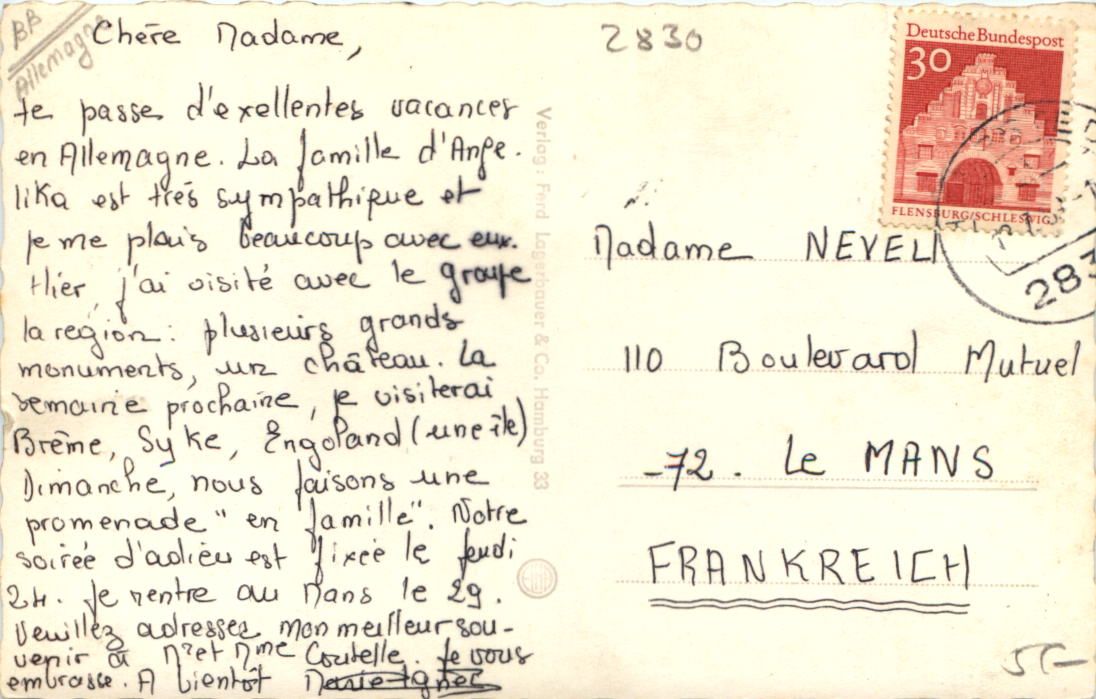 BB
Allemagne
Chère Madame,
Je passe d'exellentes vacances
en Allemagne. La famille d'Ange-
lika est très sympathique et
je me plais beaucoup avec eux.
Hier, j'ai visité avec le groupe
la région : plusieurs grands
monuments, un château. La
semaine prochaine, je visiterai
Brême, Syke, Engoland (une île)
Dimanche, nous faisons une
promenade "en famille". Notre
soirée d'adieu est fixée le jeudi
24. Je rentre au Mans le 29.
Veuillez adresser mon meilleur sou-
venir à Mr et Mme Coutelle. Je vous
embrasse. A bientôt Marie-Agnès
Verlag: Ferd. Lagerbauer & Co. Hamburg 33
2830
Deutsche Bundespost
30
FLENSBURG/SCHLESWIG
283
Madame NEVEU
110 Boulevard Mutuel
-72. Le MANS
FRANKREICH